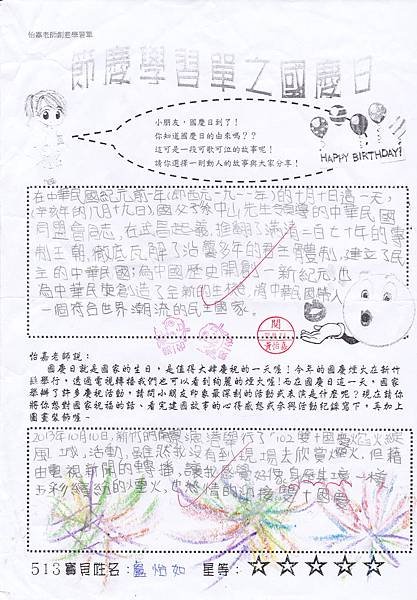 怡嘉老師創意學習單
節慶學習單之國慶日
小朋友，國慶日到了！
你知道國慶日的由來嗎？？
這可是一段可歌可泣的故事呢！
請你選擇一則動人的故事與大家分享！
HAPPY BIRTHDAY!
在中華民國紀元前一年(即西元一九一一年)的十月十日這一天，
(辛亥年的八月十九日)，國父孫中山先生領導的中華民國
同盟會同志，在武昌起義，推翻了滿清二百七十年的專
制王朝，徹底瓦解了沿襲多年的君主體制，建立了民
主的中華民國；為中國歷史開創一新紀元，也
為中華民族創造了全新的生
一個符合世界潮流的民主國家。
閱
黃怡嘉
怡嘉老師說：
國慶日就是國家的生日，是值得大肆慶祝的一天喔！今年的國慶煙火在新竹
舉行，透過電視轉播我們也可以看到絢麗的煙火喔！而在國慶日這一天，國家
舉辦了許多慶祝活動，請問小朋友印象最深刻的活動或表演是什麼呢？現在請你
將你想對國家祝福的話、看完建國故事的心得感想或參與活動紀錄寫下，再加上
圖畫裝飾喔。
2013年10月10日，新竹的南寮漁港舉行了"102雙十國慶焰火縱
風城"活動，雖然我沒有到現場去欣賞煙火，但藉
由電視新聞的轉播，讓我感覺好像身歷其境一樣，
五彩繽紛的煙火，也熱情的迎接雙十國慶
513寶貝姓名：盧怡如 星等：☆☆☆☆☆